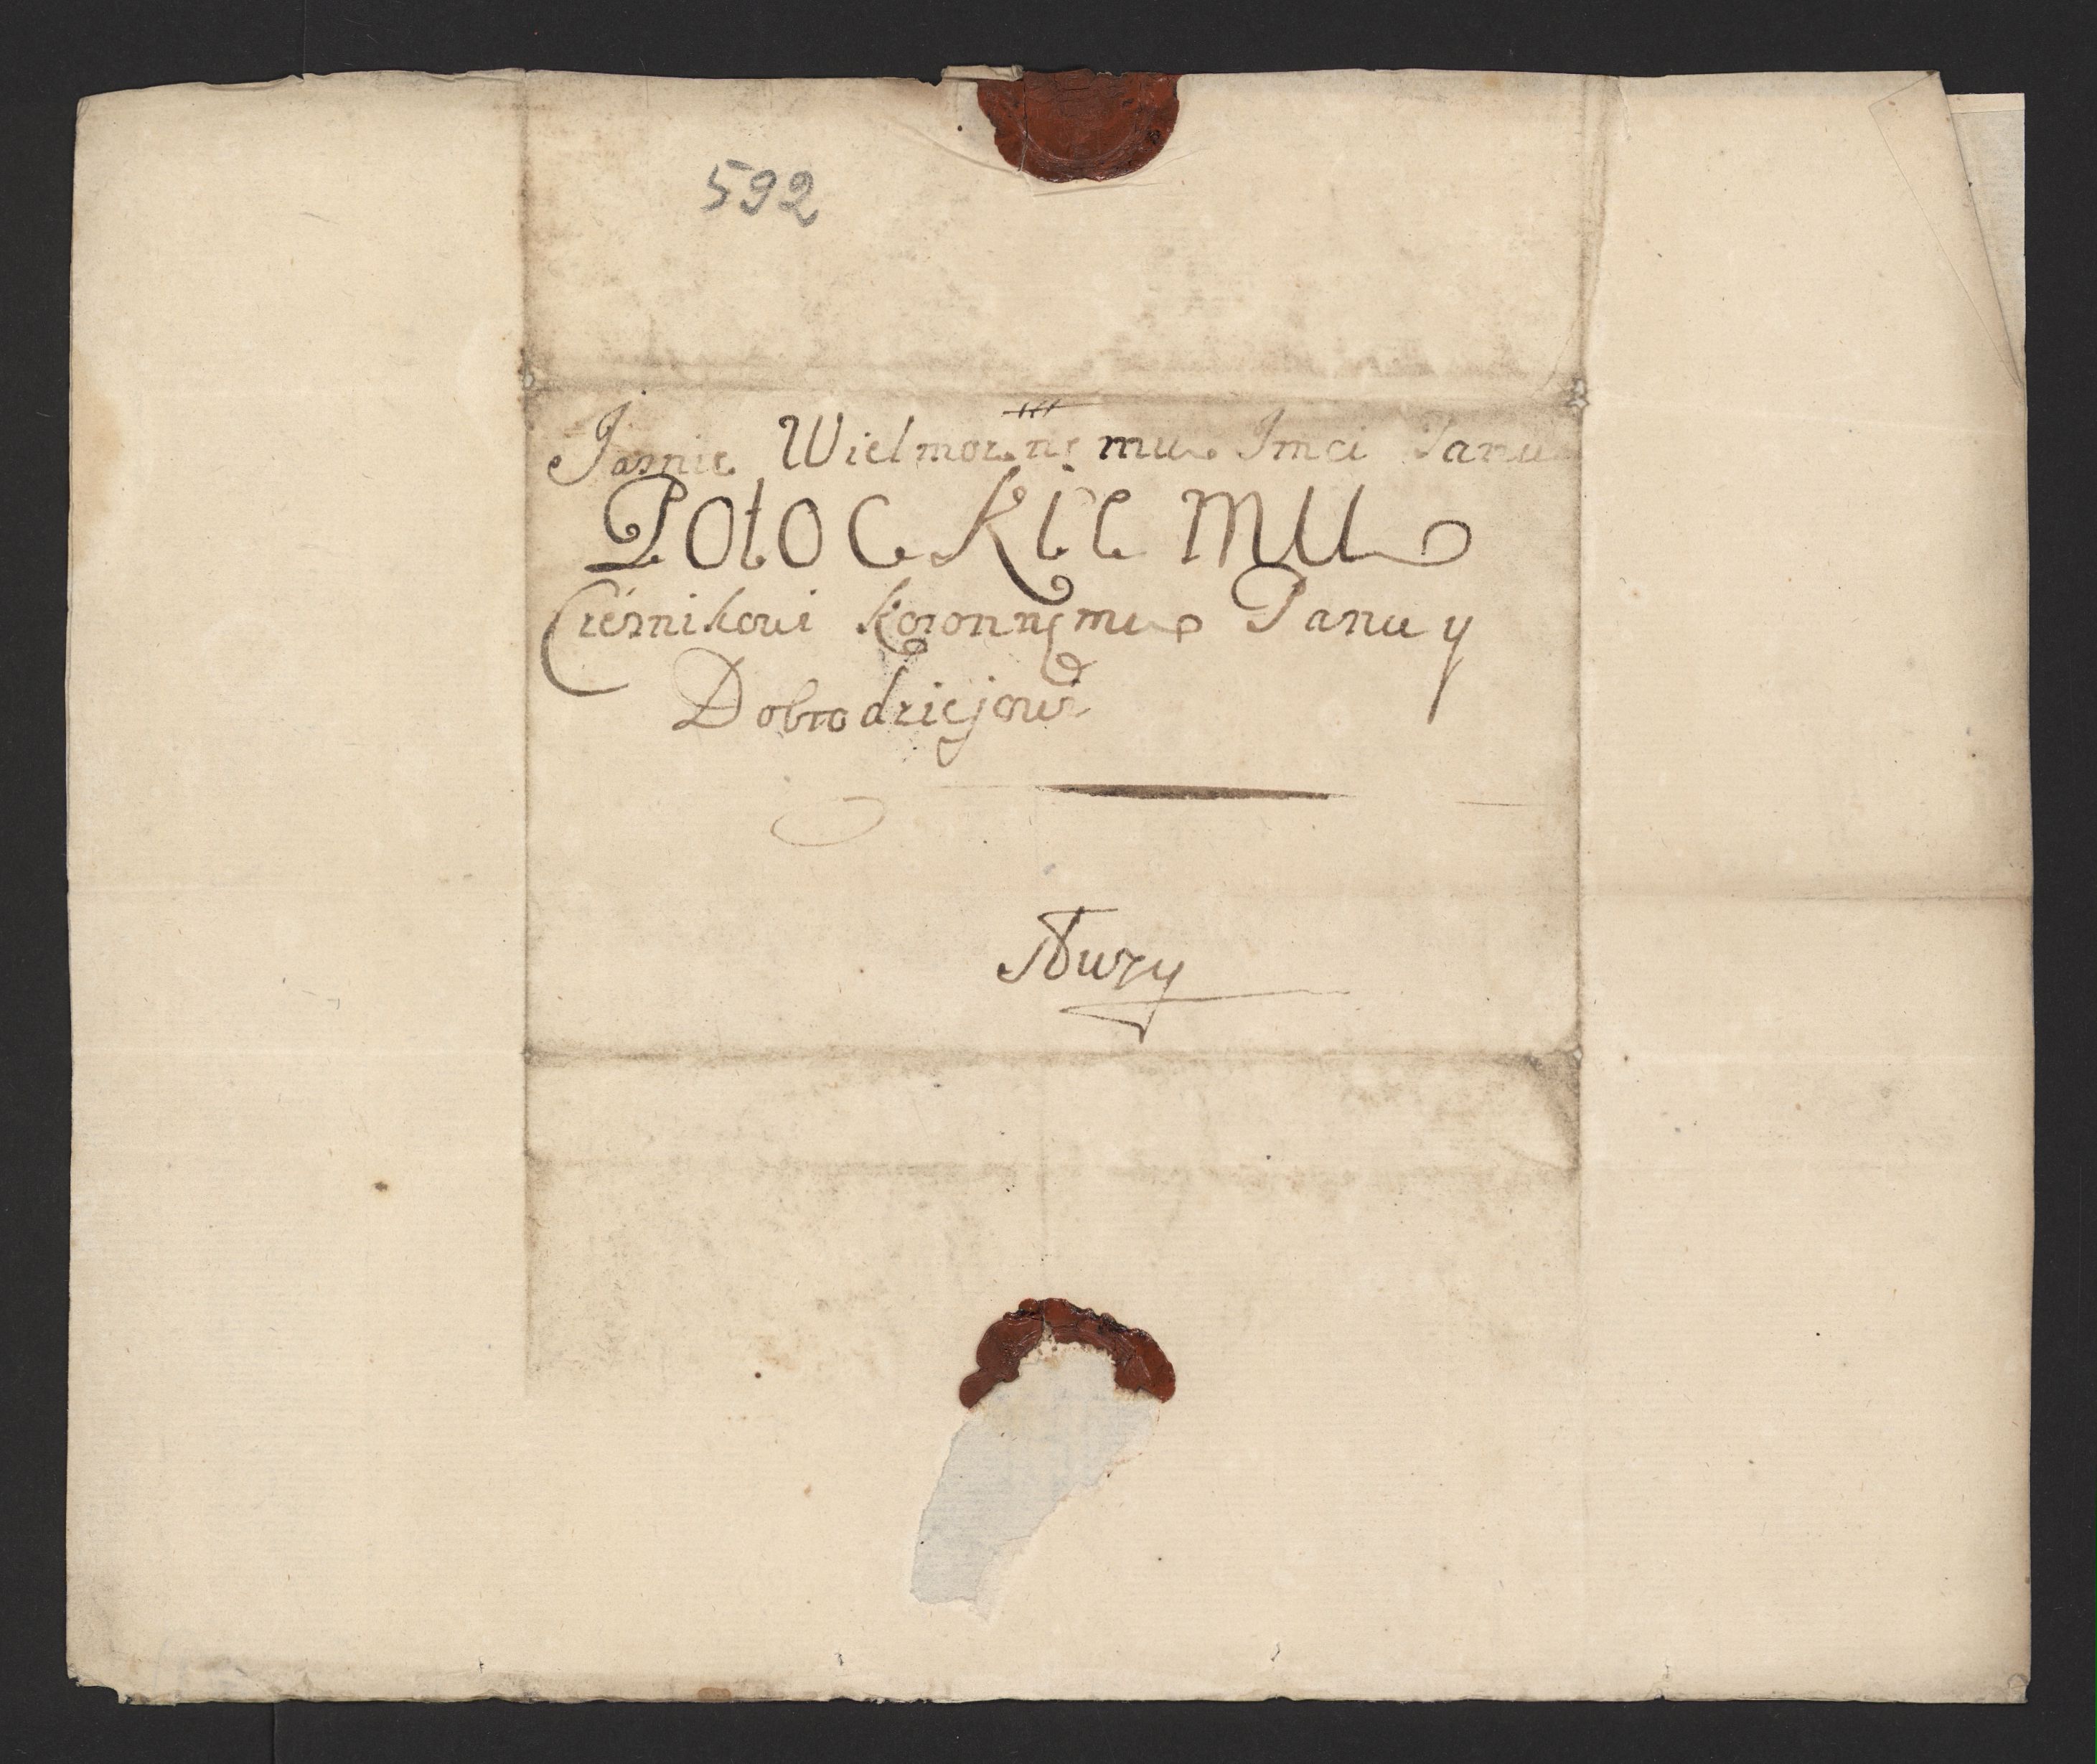 592
Jasnie Wielmoznemu Jmci Panu
Potockiemu
Cześnikowi koronnemu Panu y
Dobrodziejowi